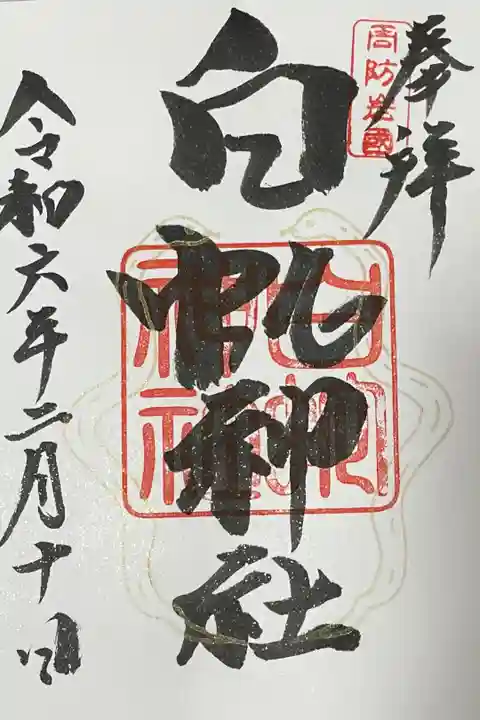 奉拝
周防岩國
白蛇神社
白蛇神社
令和六年二月十日